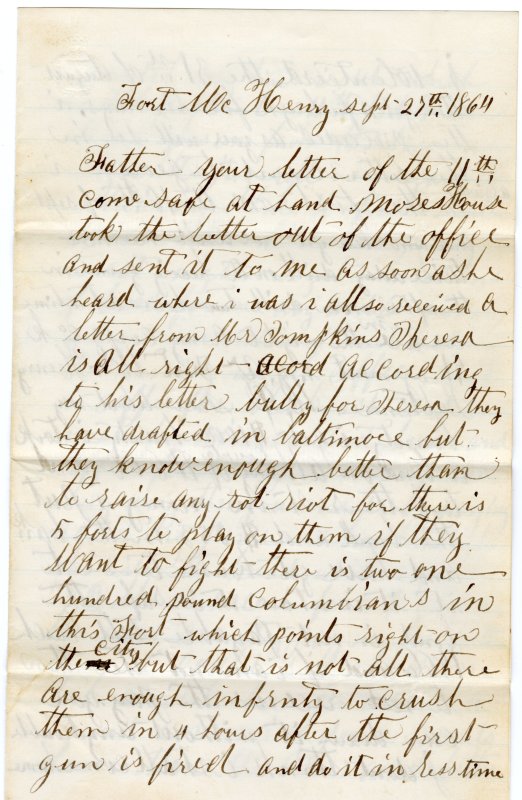 Fort Mc Henry sept 27th 1864
Father your letter of the 11th
come safe at hand Moses House
took the letter out of the office
and sent it to me as soon as he
heard where i was i allso received a
letter from Mr Tompkins Theresa
is all right acord according
to his letter bully for Theresa they
have drafted in baltimore but
they know enough better than
to raise any rot riot for there is
5 forts to play on them if they
Want to fight there is two one
hundred pound Columbians in
this Fort which points right on
the City but that is not all there
are enough infrnty to crush
them in 4 hours after the first
gun is fired and do it in less time